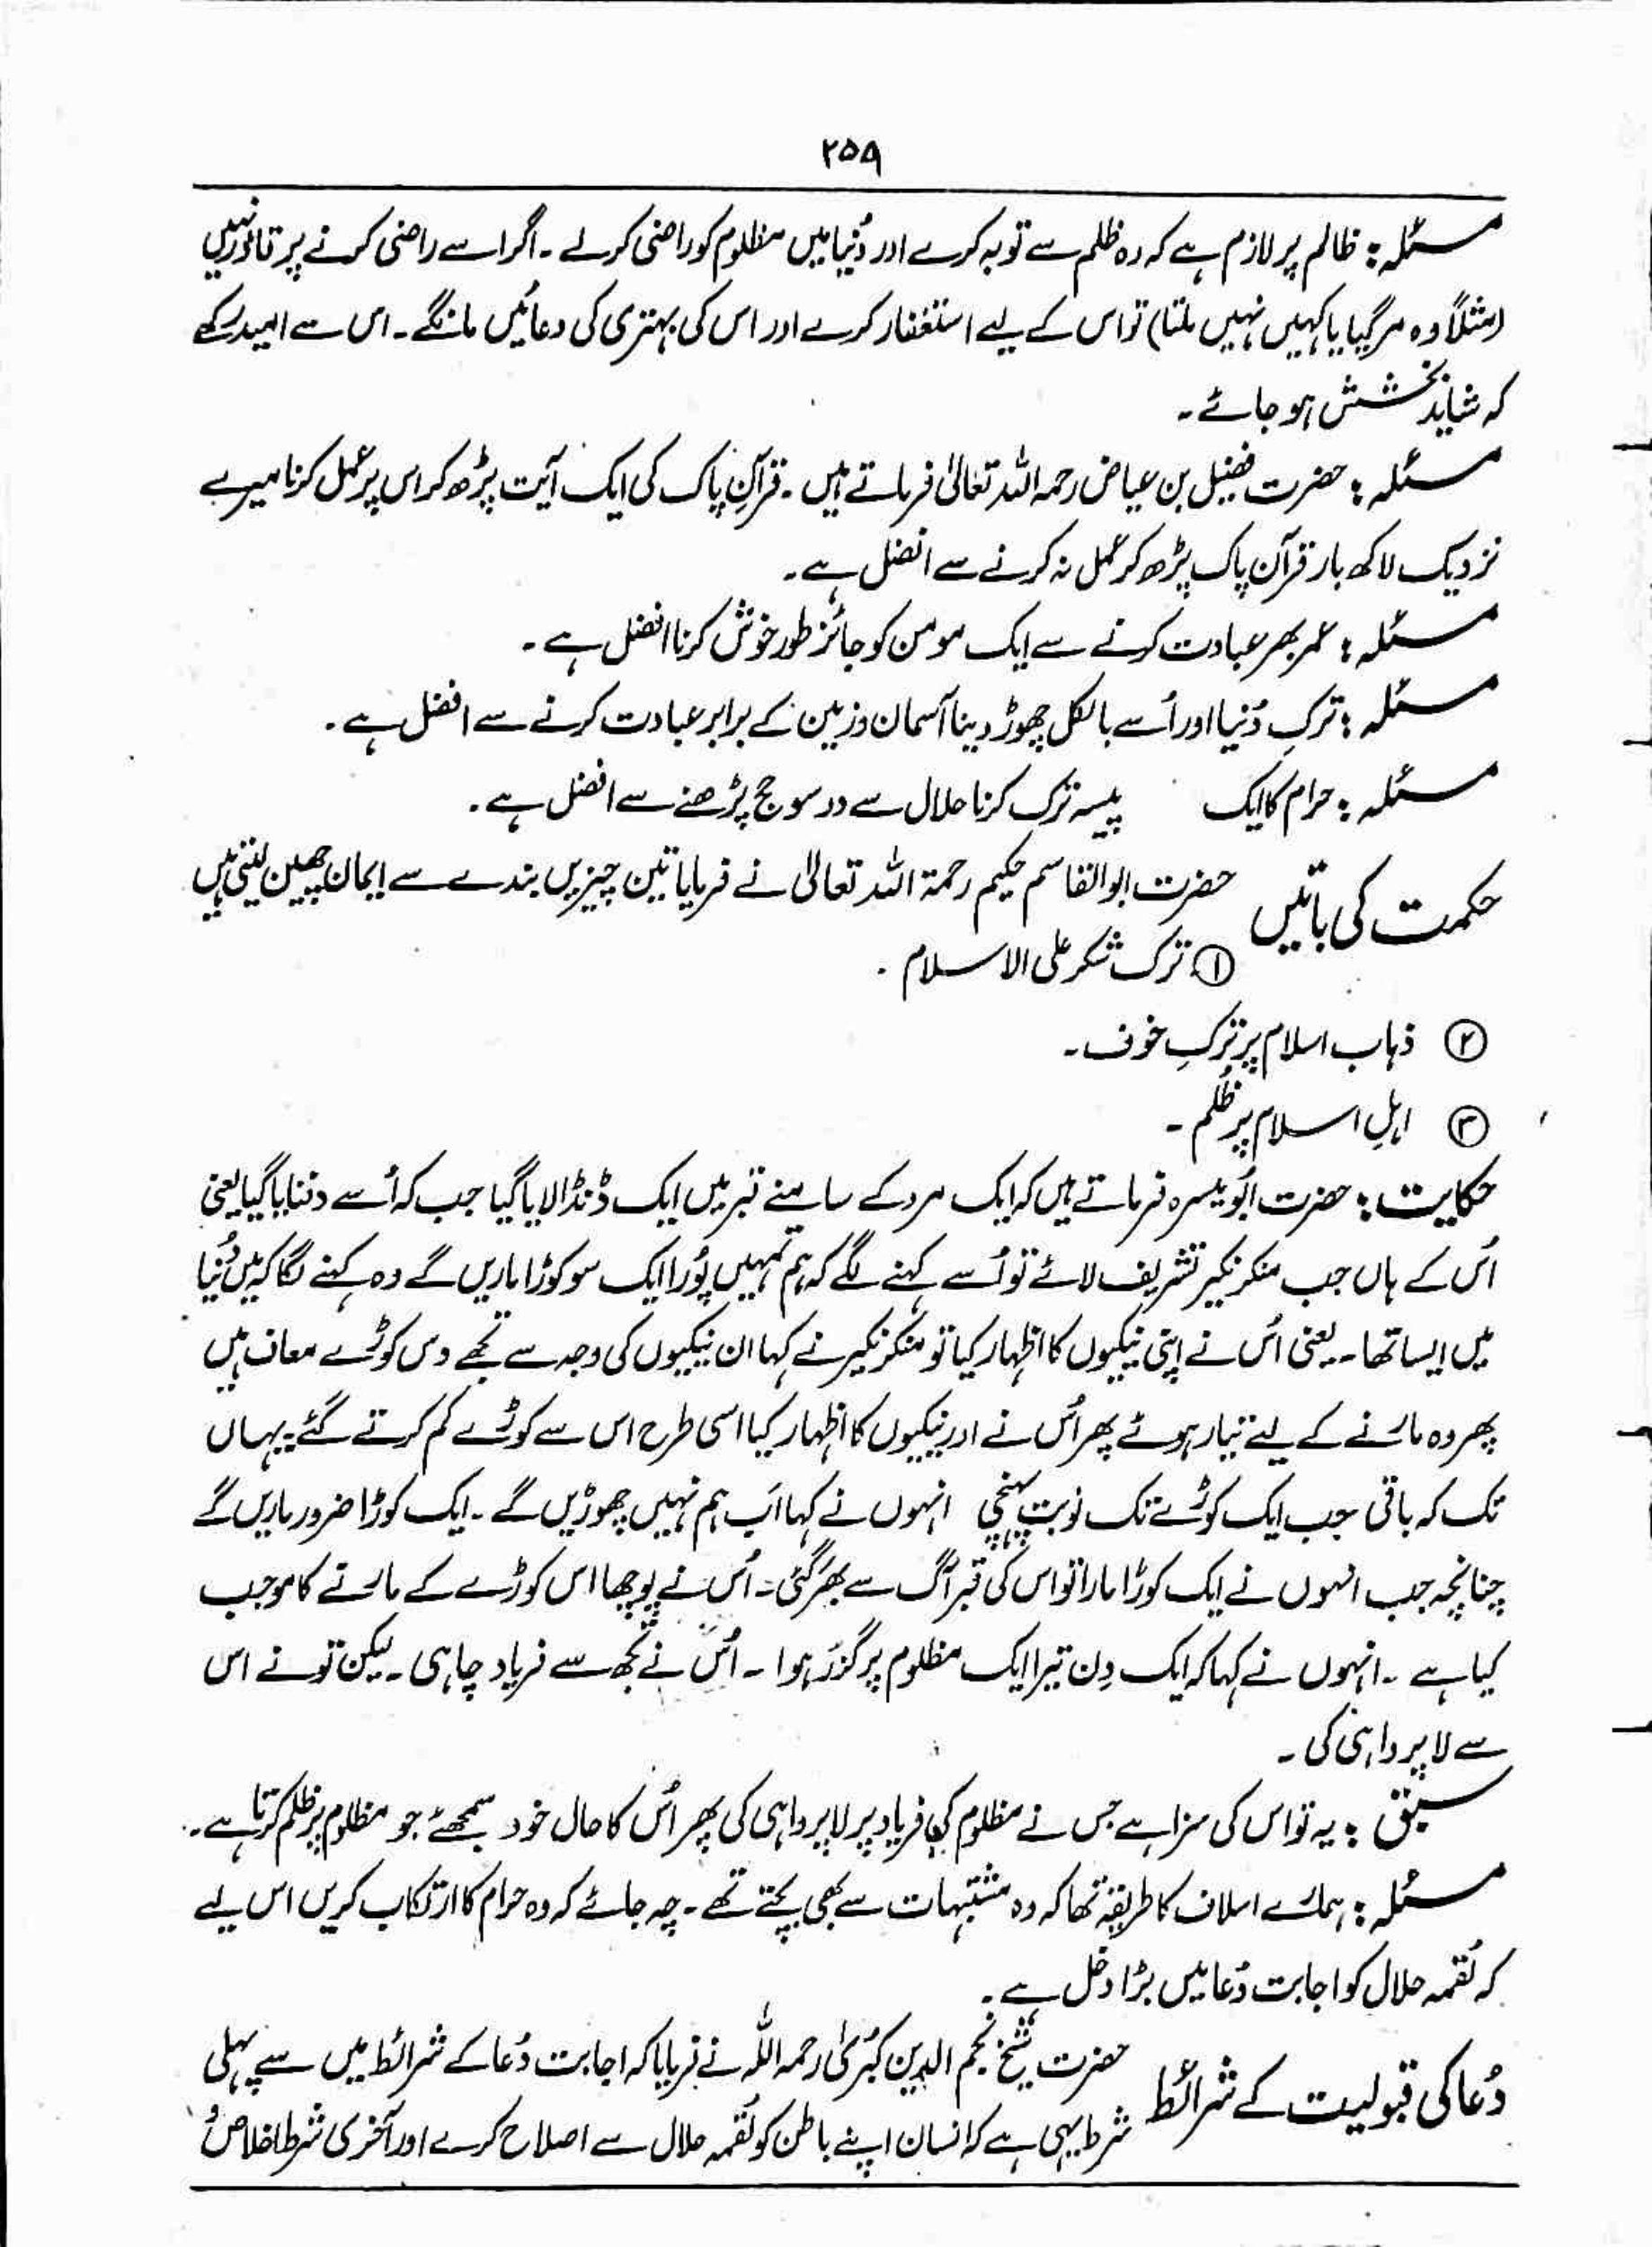 ۲۵۹
مسئلہ : ظالم پر لازم ہے کہ وہ ظلم سے توبہ کرے اور دُنیا میں مظلوم کو راضی کرلے ۔ اگر اسے راضی کرنے پر قادر نہیں
(مثلاً وہ مرگیا یا کہیں نہیں ملتا) تو اس کے لیے استغفار کرے اور اس کی بہتری کی دعائیں مانگے ۔ اس سے امید رکھے
کہ شاید بخشش ہو جائے ۔
مسئلہ : حضرت فضیل بن عیاض رحمہ اللہ تعالیٰ فرماتے ہیں ۔ قرآنِ پاک کی ایک آیت پڑھ کر اس پر عمل کرنا میرے
نزدیک لاکھ بار قرآن پاک پڑھ کر عمل نہ کرنے سے افضل ہے ۔
مسئلہ : عمر بھر عبادت کرنے سے ایک مومن کو جائز طور خوش کرنا افضل ہے ۔
مسئلہ : ترکِ دُنیا اور اُسے بالکل چھوڑ دینا آسمان و زمین کے برابر عبادت کرنے سے افضل ہے ۔
مسئلہ : حرام کا ایک پیسہ ترک کرنا حلال سے دو سو حج پڑھنے سے افضل ہے ۔
حکمت کی باتیں حضرت ابوالقاسم حکیم رحمۃ اللہ تعالیٰ نے فرمایا تین چیزیں بندے سے ایمان چھین لیتی ہیں
① ترک شکر علی الاسلام ۔
② ذہاب اسلام پر ترکِ خوف ۔
③ اہلِ اسلام پر ظُلم ۔
حکایت : حضرت ابُو میسرہ فرماتے ہیں کہ ایک مرد کے سامنے قبر میں ایک ڈنڈا لایا گیا جب کہ اُسے دفنایا گیا یعنی
اُس کے ہاں جب منکر نکیر تشریف لائے تو اُسے کہنے لگے کہ ہم تمہیں پُورا ایک سو کوڑا ماریں گے وہ کہنے لگا کہ میں دُنیا
میں ایسا تھا ۔ یعنی اُس نے اپنی نیکیوں کا اظہار کیا تو منکر نکیر نے کہا ان نیکیوں کی وجہ سے تجھے دس کوڑے معاف ہیں
پھر وہ مارنے کے لیے تیار ہوئے پھر اُس نے اور نیکیوں کا اظہار کیا اسی طرح اس سے کوڑے کم کرتے گئے یہاں
تک کہ باقی جب ایک کوڑے تک نوبت پہنچی انہوں نے کہا اَب ہم نہیں چھوڑیں گے ۔ ایک کوڑا ضرور ماریں گے
چنانچہ جب انہوں نے ایک کوڑا مارا تو اس کی قبر آگ سے بھر گئی ۔ اُس نے پوچھا اس کوڑے کے مارنے کا موجب
کیا ہے ۔ انہوں نے کہا کہ ایک دِن تیرا ایک مظلوم پر گزر ہوا ۔ اُس نے تجھ سے فریاد چاہی ۔ لیکن تونے اس
سے لاپرواہی کی ۔
سبق : یہ تو اس کی سزا ہے جس نے مظلوم کی فریاد پر لاپرواہی کی پھر اُس کا حال خود سمجھئے جو مظلوم پر ظلم کرتا ہے ۔
مسئلہ : ہمارے اسلاف کا طریقہ تھا کہ وہ مشتبہات سے بھی بچتے تھے ۔ چہ جائے کہ وہ حرام کا ارتکاب کریں اس لیے
کہ لُقمہ حلال کو اجابت دُعا میں بڑا دخل ہے ۔
دُعا کی قبولیت کے شرائط حضرت شیخ نجم الدین کبُریٰ رحمہ اللہ نے فرمایا کہ اجابت دُعا کے شرائط میں سے پہلی
شرط یہی ہے کہ انسان اپنے باطن کو لُقمہ حلال سے اصلاح کرے اور آخری شرط اخلاص و